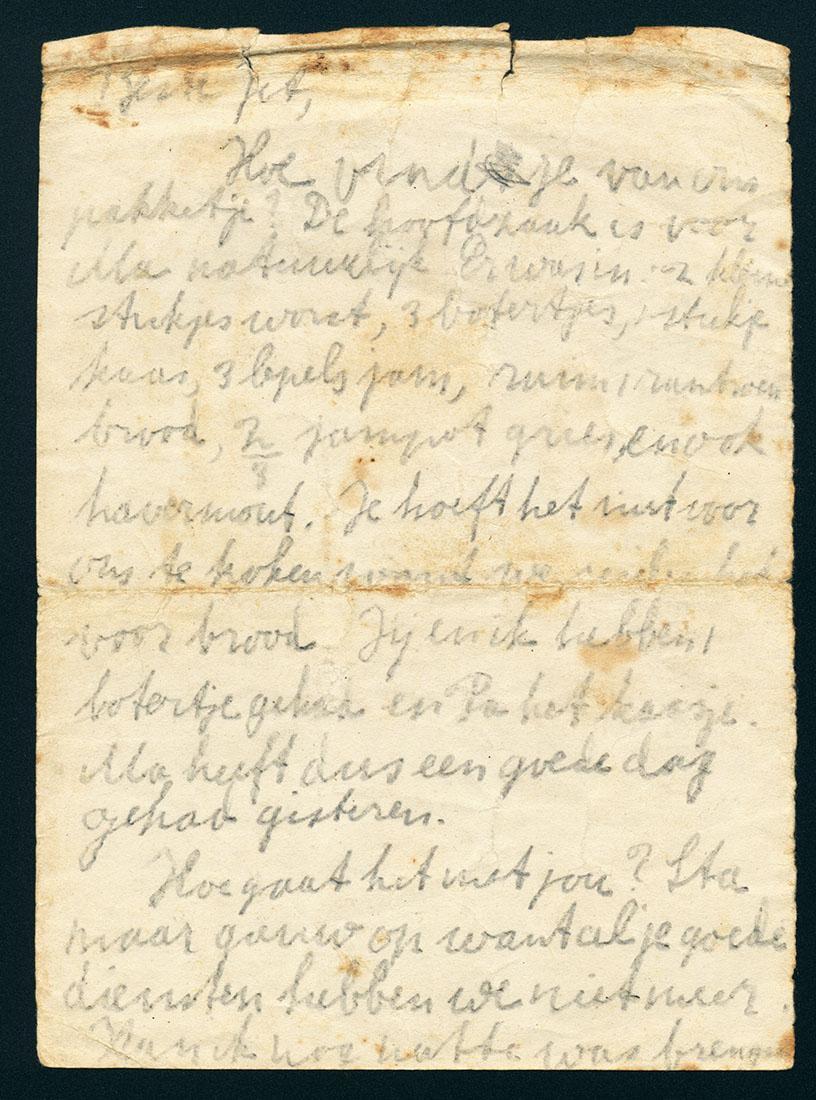 Beste Jet,
Hoe vind je van ons
pakketje? De hoofdzaak is voor
Ma natuurlijk Er was in: 2 kleine
stukjes worst, 3 botertjes, 1 stukje
kaas, 3 lepels jam, ruim 1 rantsoen
brood, 2/3 jampot gries, en ook
havermout. Je hoeft het niet voor
ons te koken want we
voor brood Jij en ik hebben 1
botertje gehad en Pa het kaasje.
Ma heeft dus een goede dag
gehad gisteren.
Hoe gaat het met jou? Sta
maar gauw op want al je goede
diensten hebben we niet meer.
Kan ik nog natte was brengen